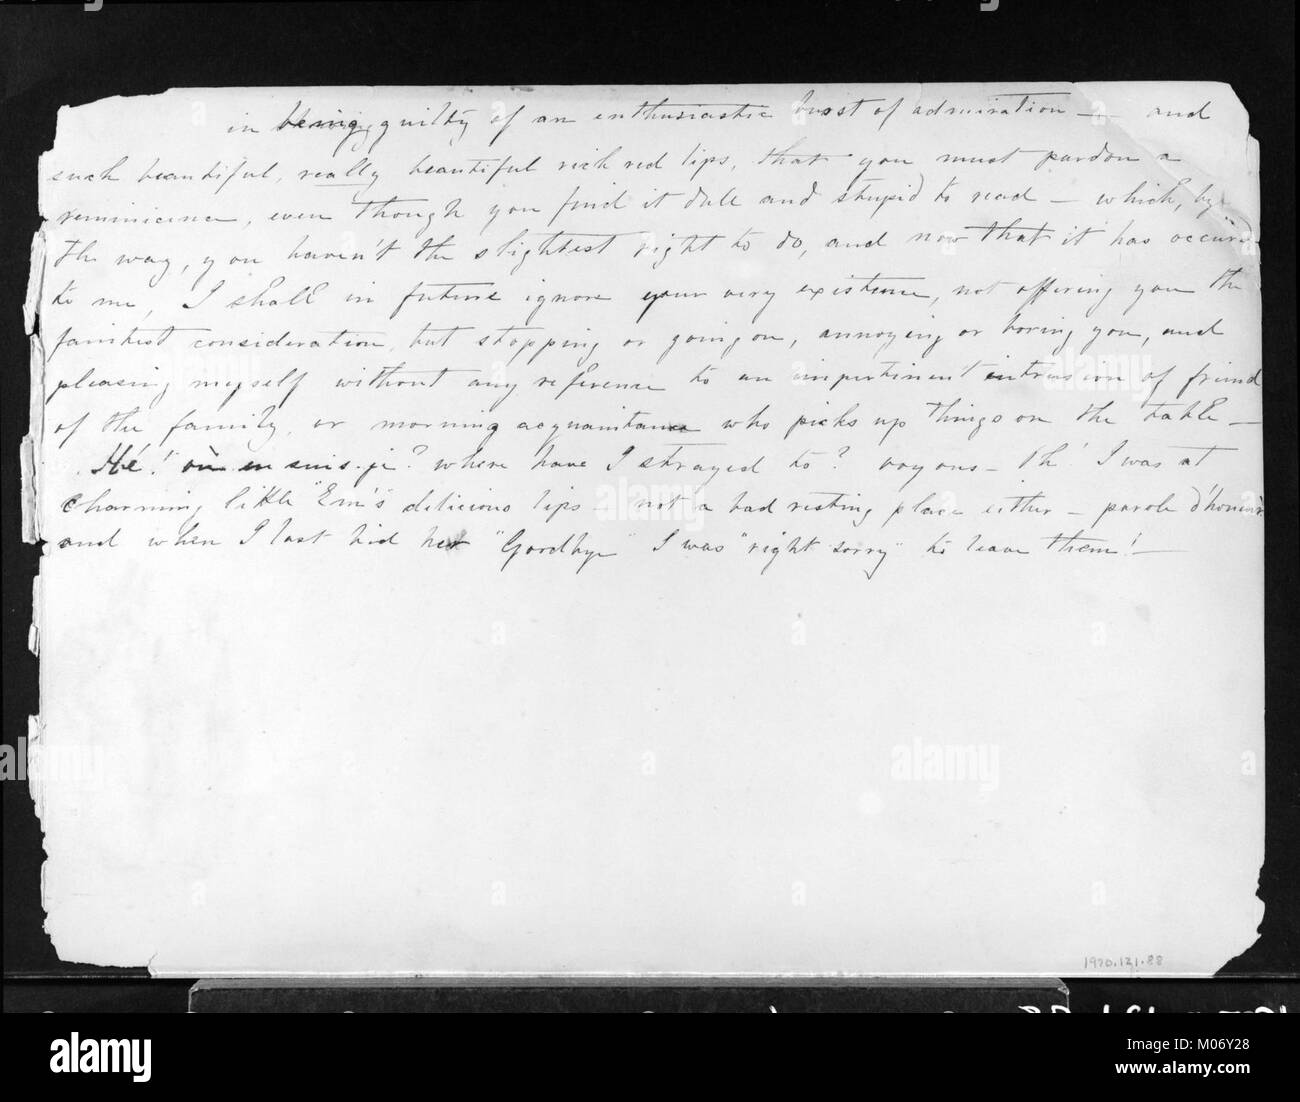 in being guilty of an enthusiastic burst of admiration — and
such beautiful, really beautiful rich red lips, that you must pardon a
reminicence, even though you find it dull and stupid to read — which, by
the way, you haven't the slightest right to do, and now that it has occured
to me, I shall in future ignore your very existence, not offering you the
faintest consideration, but stopping or going on, annoying or boring you, and
pleasing myself without any reference to an impertinent intrusion of friend
of the family, or morning acquaintance who picks up things on the table —
Hé! où en suis-je? where have I strayed to? voyons — Oh! I was at
charming little "Em's" delicious lips — not a bad resting place either — parole d'honneur
and when I last bid her "Goodbye" I was "right sorry" to leave them! —
1970.121.88
alamy
M06Y28
www.alamy.com